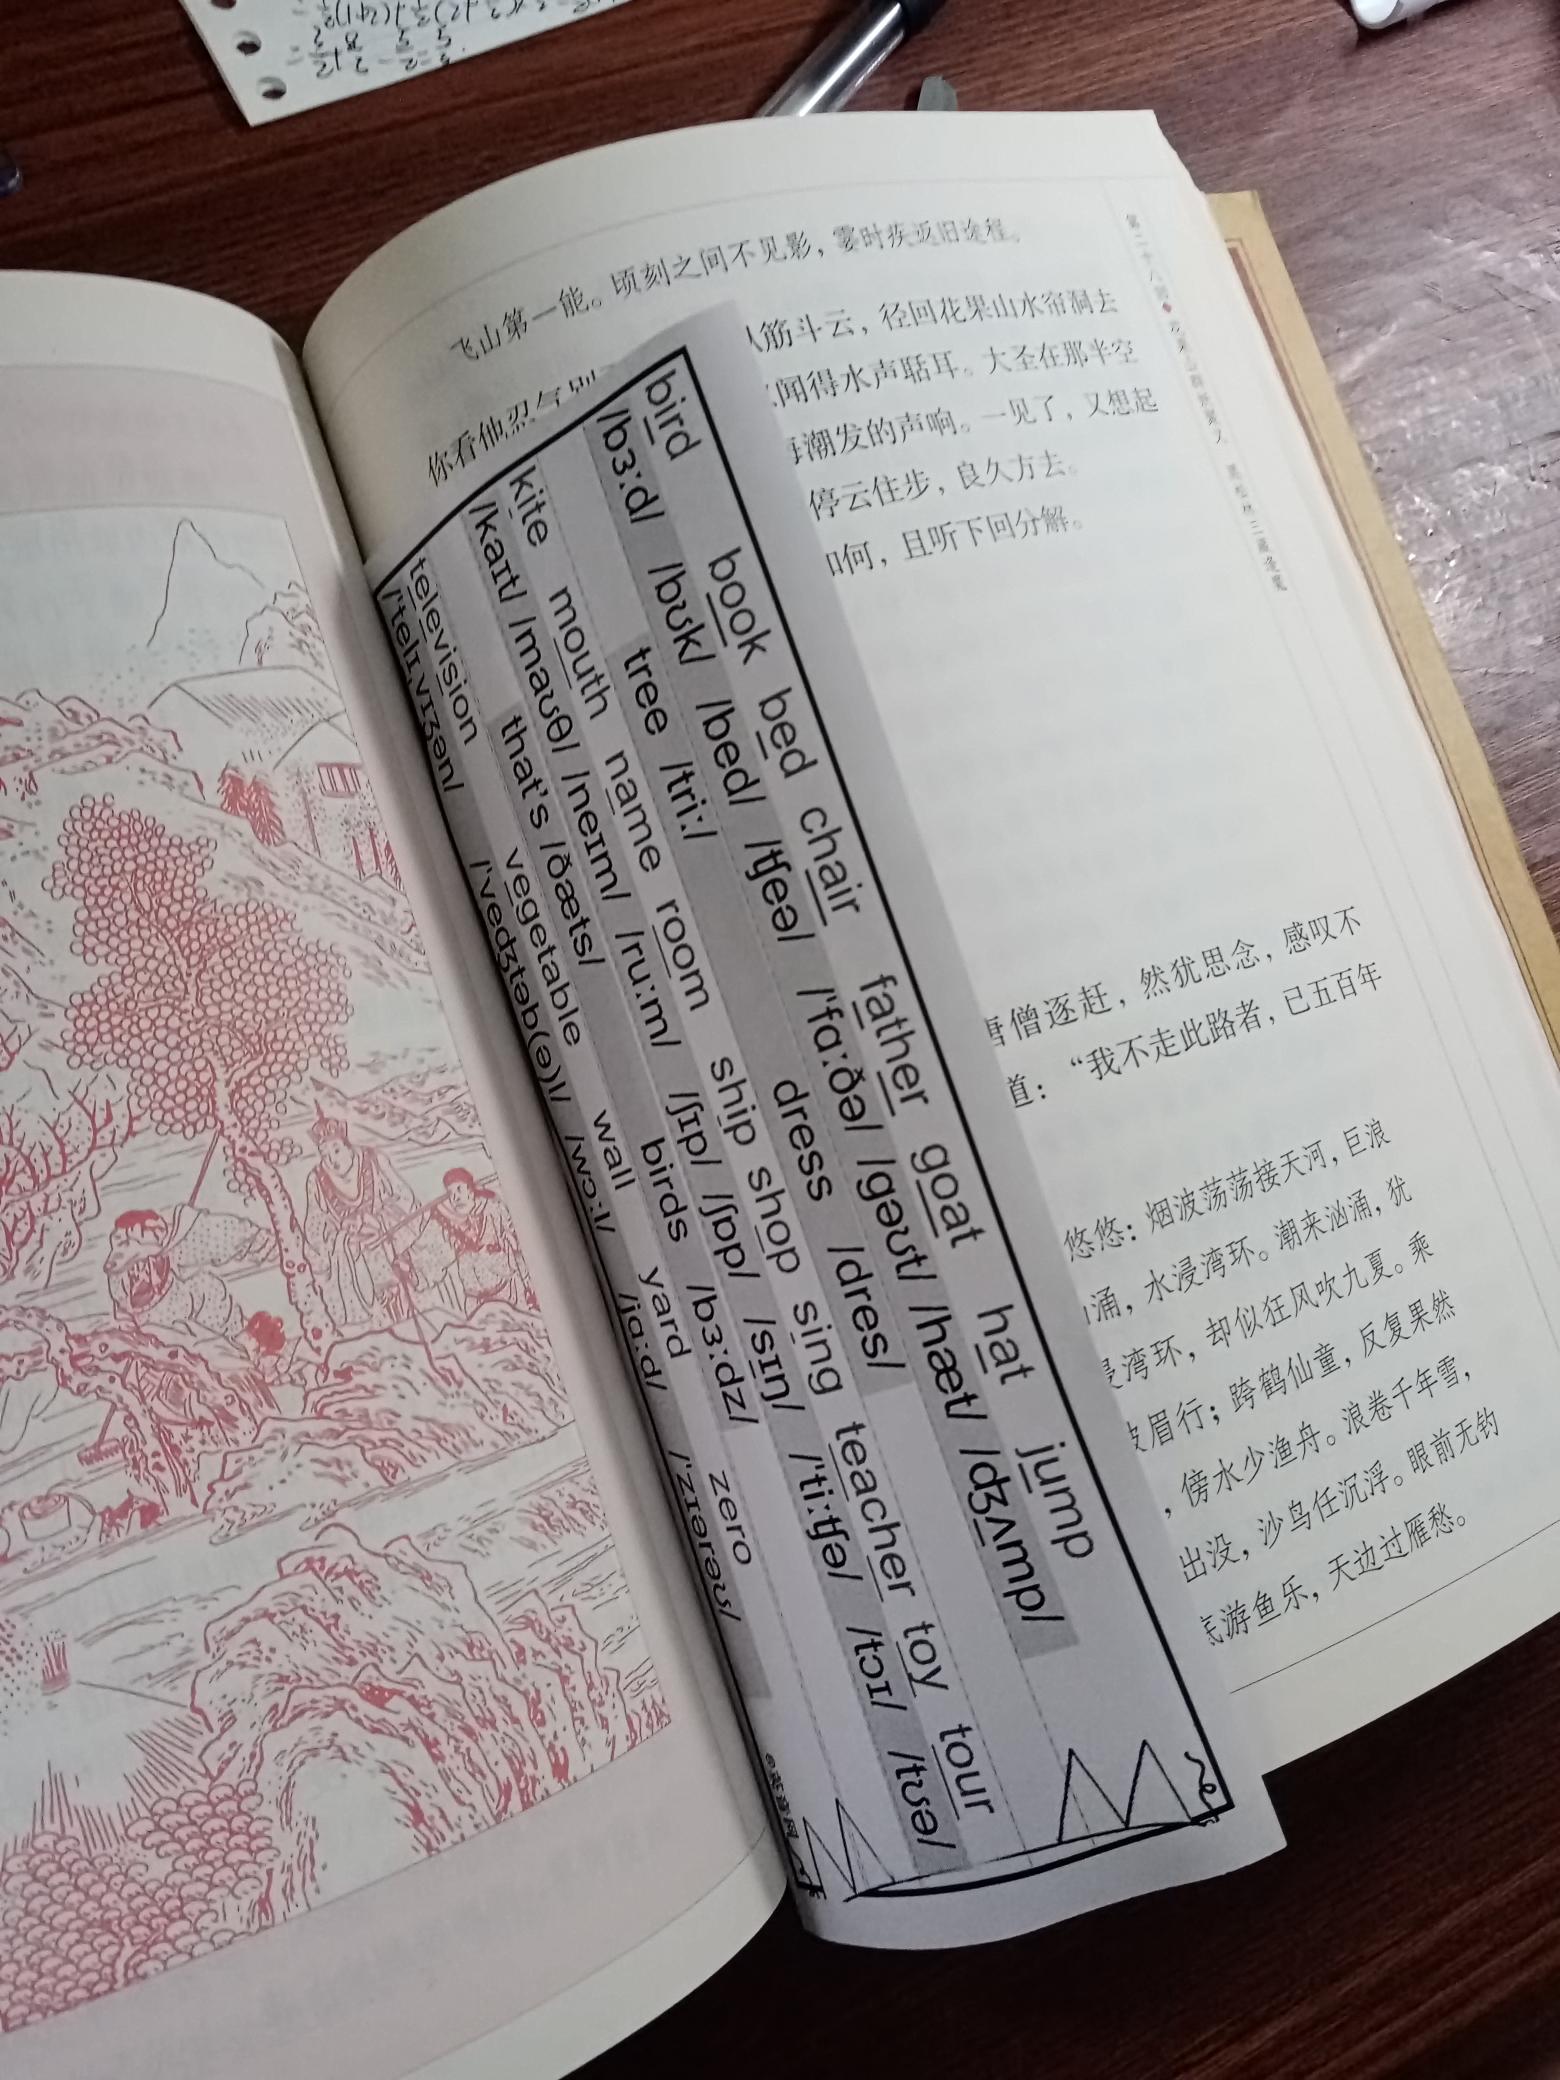 飞山第一能。顷刻之间不见影，霎时疾返旧途程。
你看他忍气别
筋斗云，径回花果山水帘洞去
闻得水声聒耳。大圣在那半空
海潮发的声响。一见了，又想起
停云住步，良久方去。
如何，且听下回分解。
唐僧逐赶，然犹思念，感叹不
道：“我不走此路者，已五百年
悠悠：烟波荡荡接天河，巨浪
涌，水浸湾环。潮来汹涌，犹
浸湾环，却似狂风吹九夏。乘
眉行；跨鹤仙童，反复果然
，傍水少渔舟。浪卷千年雪，
出没，沙鸟任沉浮。眼前无钓
底游鱼乐，天边过雁愁。
bird book bed chair father goat hat jump
/bɜːd/ /bʊk/ /bed/ /ʧeə/ /ˈfɑːðə/ /gəʊt/ /hæt/ /ʤʌmp/
tree /triː/ dress /dres/
kite mouth name room ship shop sing teacher toy tour
/kaɪt/ /maʊθ/ /neɪm/ /ruːm/ /ʃɪp/ /ʃɒp/ /sɪŋ/ /ˈtiːʧə/ /tɔɪ/ /tʊə/
that's /ðæts/ birds /bɜːdz/
television vegetable wall yard zero
/ˈtelɪˌvɪʒən/ /ˈveʤtəb(ə)l/ /wɔːl/ /jɑːd/ /ˈzɪərəʊ/